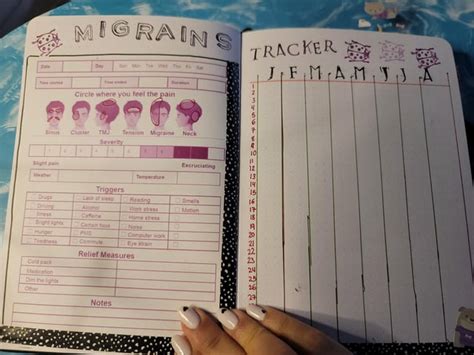 MIGRAINS
Date Day Sun Mon Tue Wed Thu Fri Sat
Time started Time ended Duration
Circle where you feel the pain
Sinus Cluster TMJ Tension Migraine Neck
Severity
Slight pain Excruciating
Weather Temperature
Triggers
Drugs Lack of sleep Reading Smells
Driving Alcohol Home stress Motion
Stress Caffeine Work stress
Bright lights Certain food Noise
Hunger PMS Computer work
Tiredness Commute Eye strain
Relief Measures
Cold pack
Medication
Dim the lights
Other
Notes
TRACKER
J F M A M J J A
1
2
3
4
5
6
7
8
9
10
11
12
13
14
15
16
17
18
19
20
21
22
23
24
25
26
27